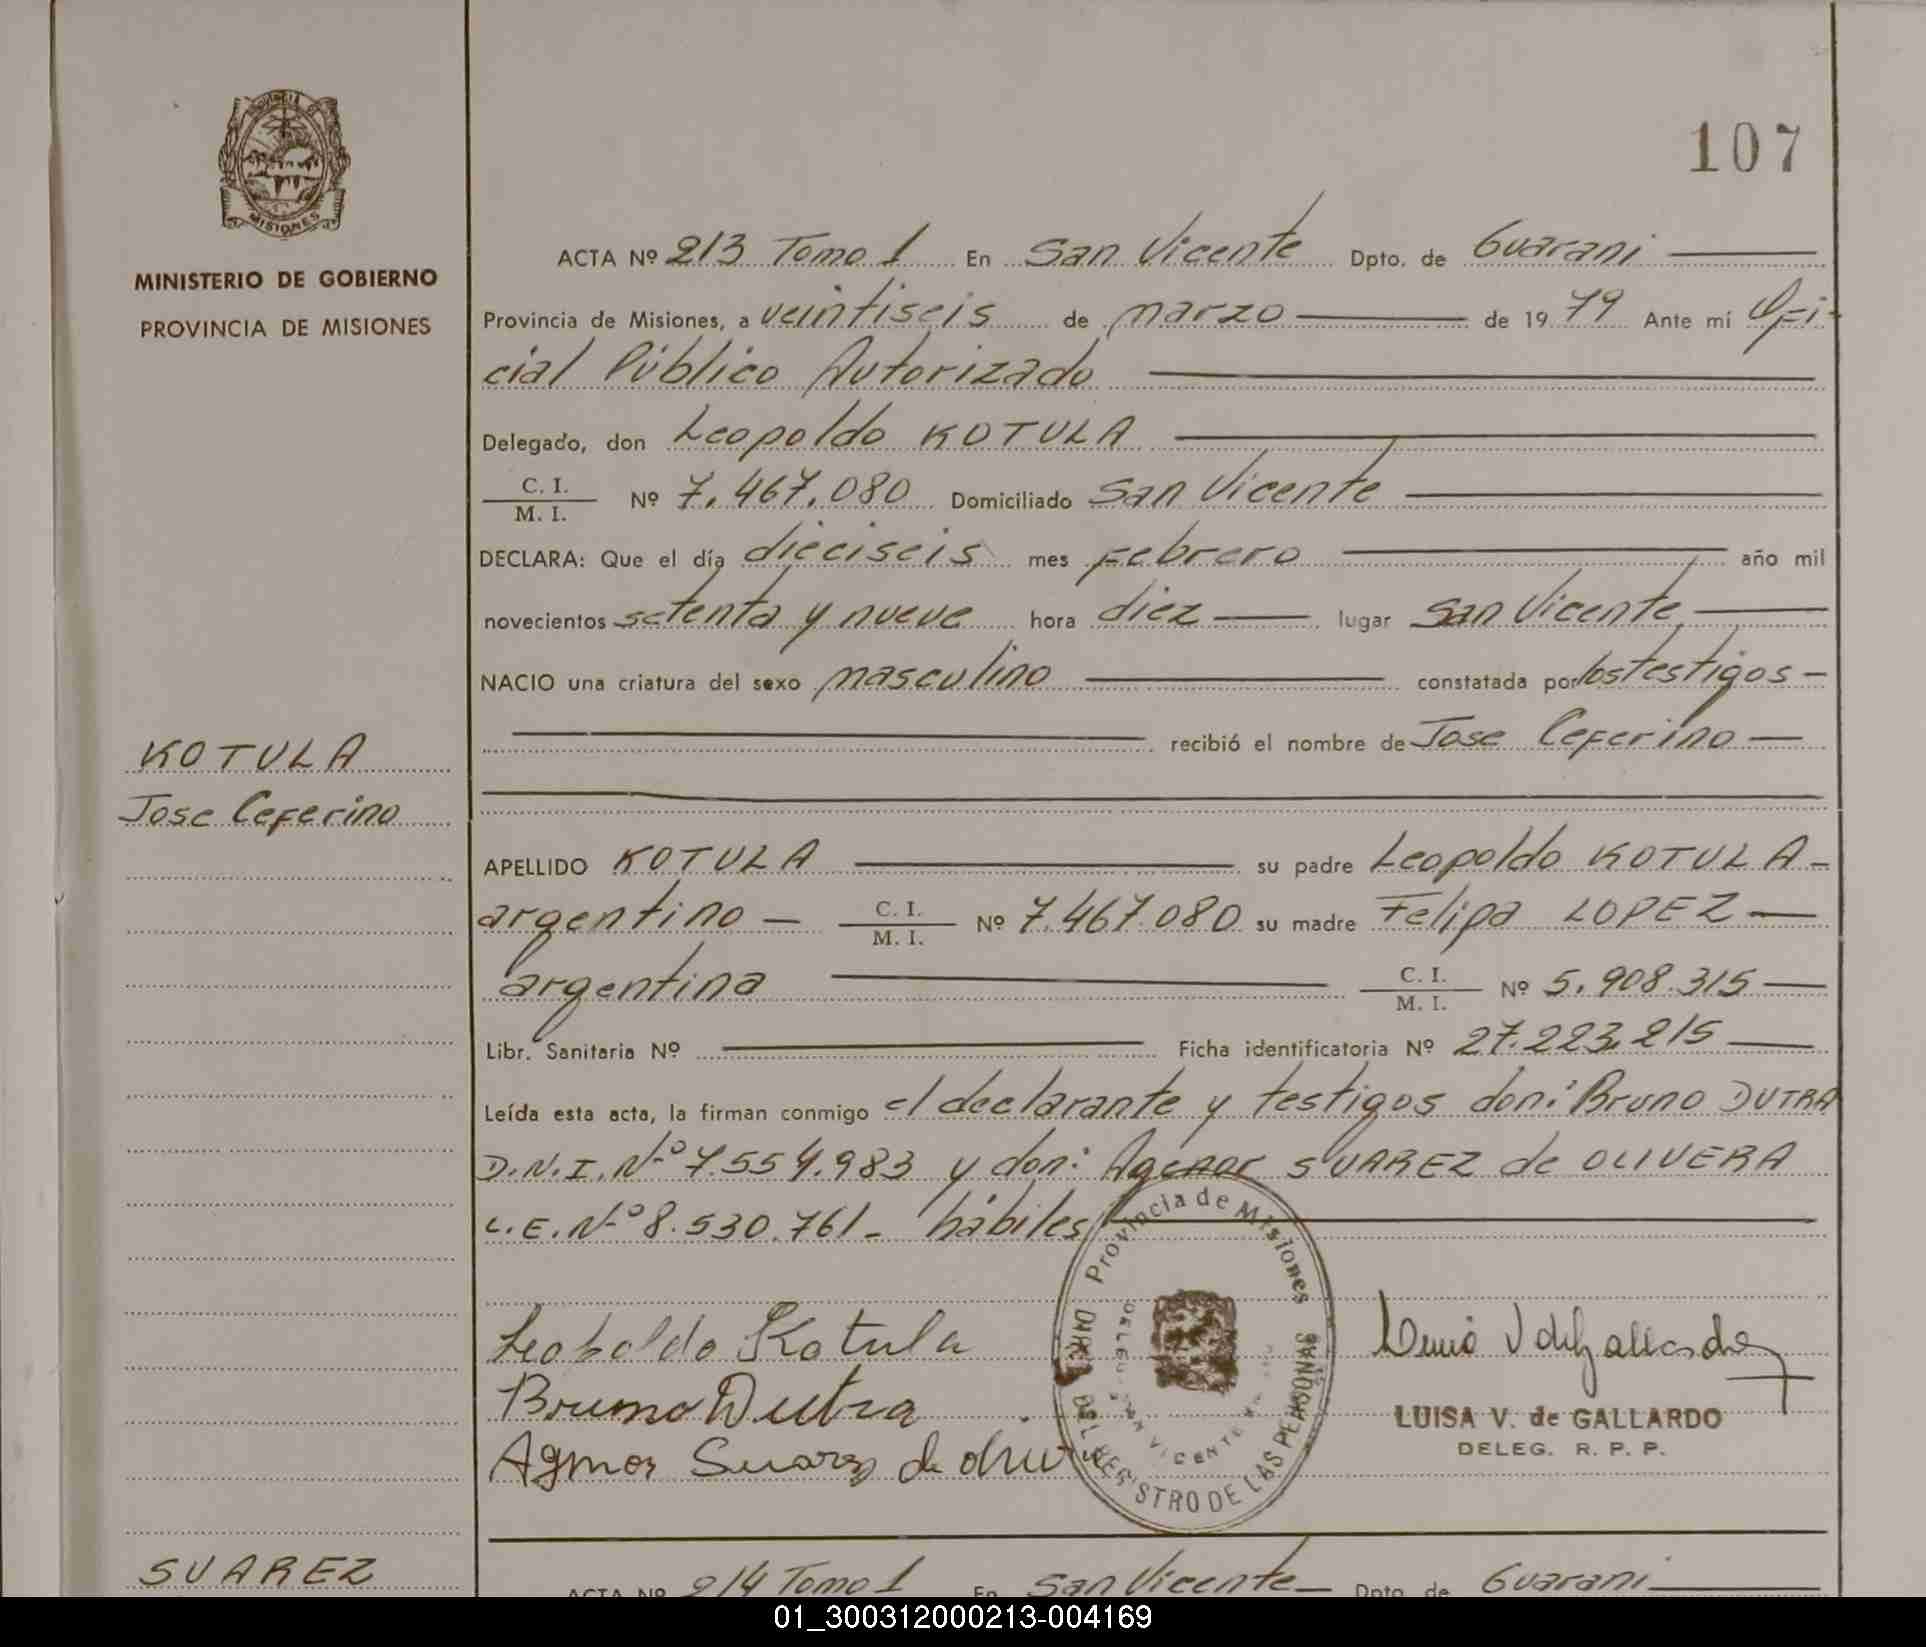 107
Provincia de
MISIONES
MINISTERIO DE GOBIERNO
PROVINCIA DE MISIONES
KOTULA
Jose Ceferino
SUAREZ
ACTA Nº 213 Tomo 1 En San Vicente Dpto. de Guarani
Provincia de Misiones, a veintiseis de marzo de 1979 Ante mí Ofi-
cial Público Autorizado
Delegado, don Leopoldo KOTULA
C. I.
M. I. Nº 7.467.080 Domiciliado San Vicente
DECLARA: Que el día dieciseis mes Febrero año mil
novecientos setenta y nueve hora diez lugar San Vicente
NACIO una criatura del sexo masculino constatada por los testigos -
recibió el nombre de Jose Ceferino
APELLIDO KOTULA su padre Leopoldo KOTULA -
argentino - C. I.
M. I. Nº 7.467.080 su madre Felipa LOPEZ
argentina C. I.
M. I. Nº 5.908.315
Libr. Sanitaria Nº Ficha identificatoria Nº 27.223.215
Leída esta acta, la firman conmigo el declarante y testigos don: Bruno DUTRA
D.N.I. Nº 7.554.983 y don: Agenor SUAREZ de OLIVERA
L.E. Nº 8.530.761 - hábiles
Leopoldo Kotula
Bruno Dutra
Agenor Suarez de
Provincia de Misiones
DEL REGISTRO DE LAS PERSONAS
SAN VICENTE
LUISA V. de GALLARDO
DELEG. R. P. P.
ACTA Nº 214 Tomo 1 En San Vicente Dpto. de Guarani
01_300312000213-004169